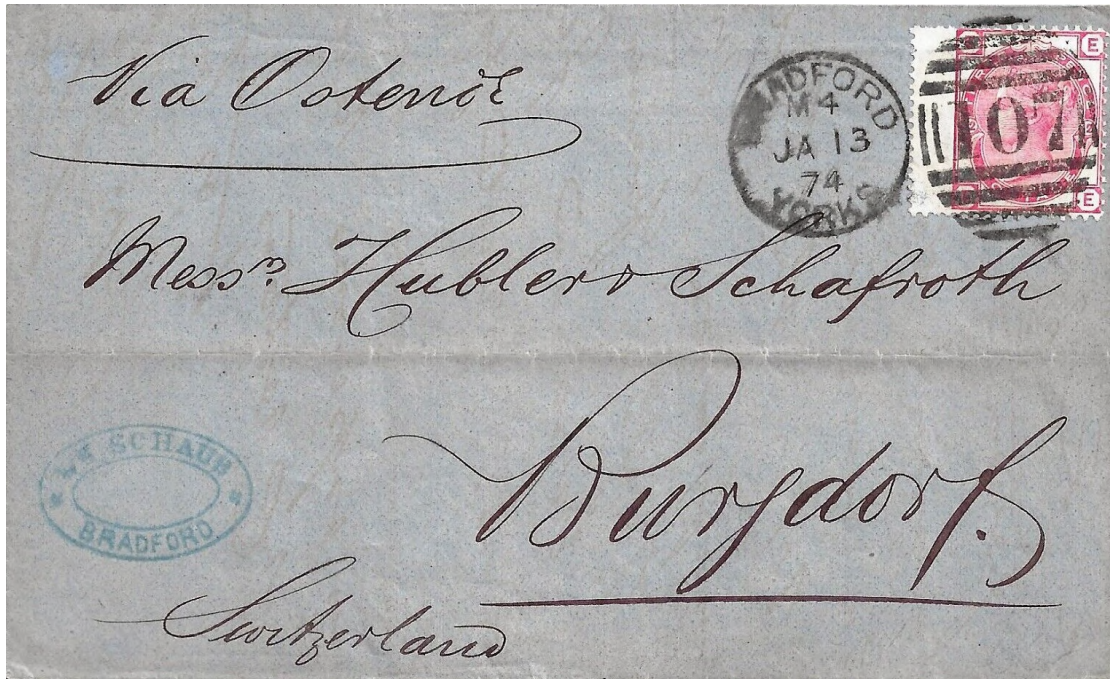 Via Ostende
BRADFORD
M 4
JA 13
74
YORKS
107
E
E
Messrs. Hubler & Schafroth
Burgdorf.
Ls SCHAUB
BRADFORD
Switzerland